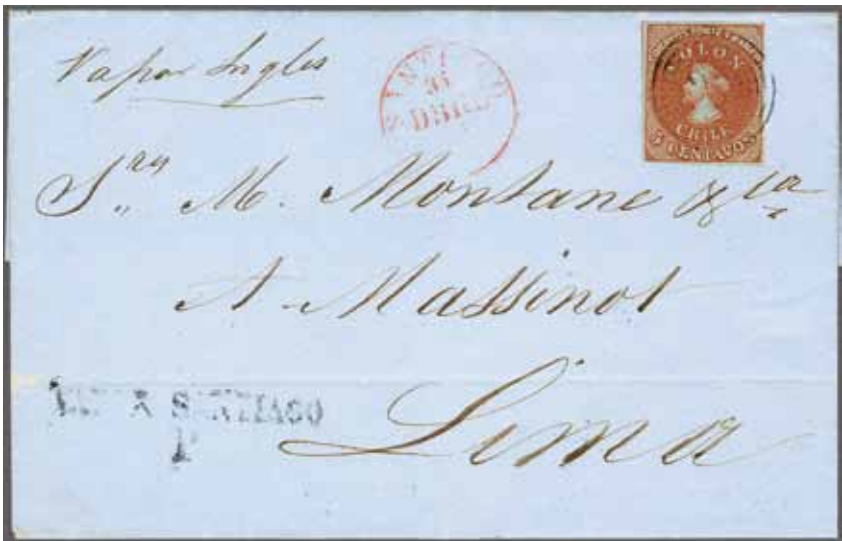 Vapor Ingles
SANTIAGO
DBRE
COLON
CHILE
5 CENTAVOS
S.res M. Montane & Ca
A. Massinot
Lima
SANTIAGO